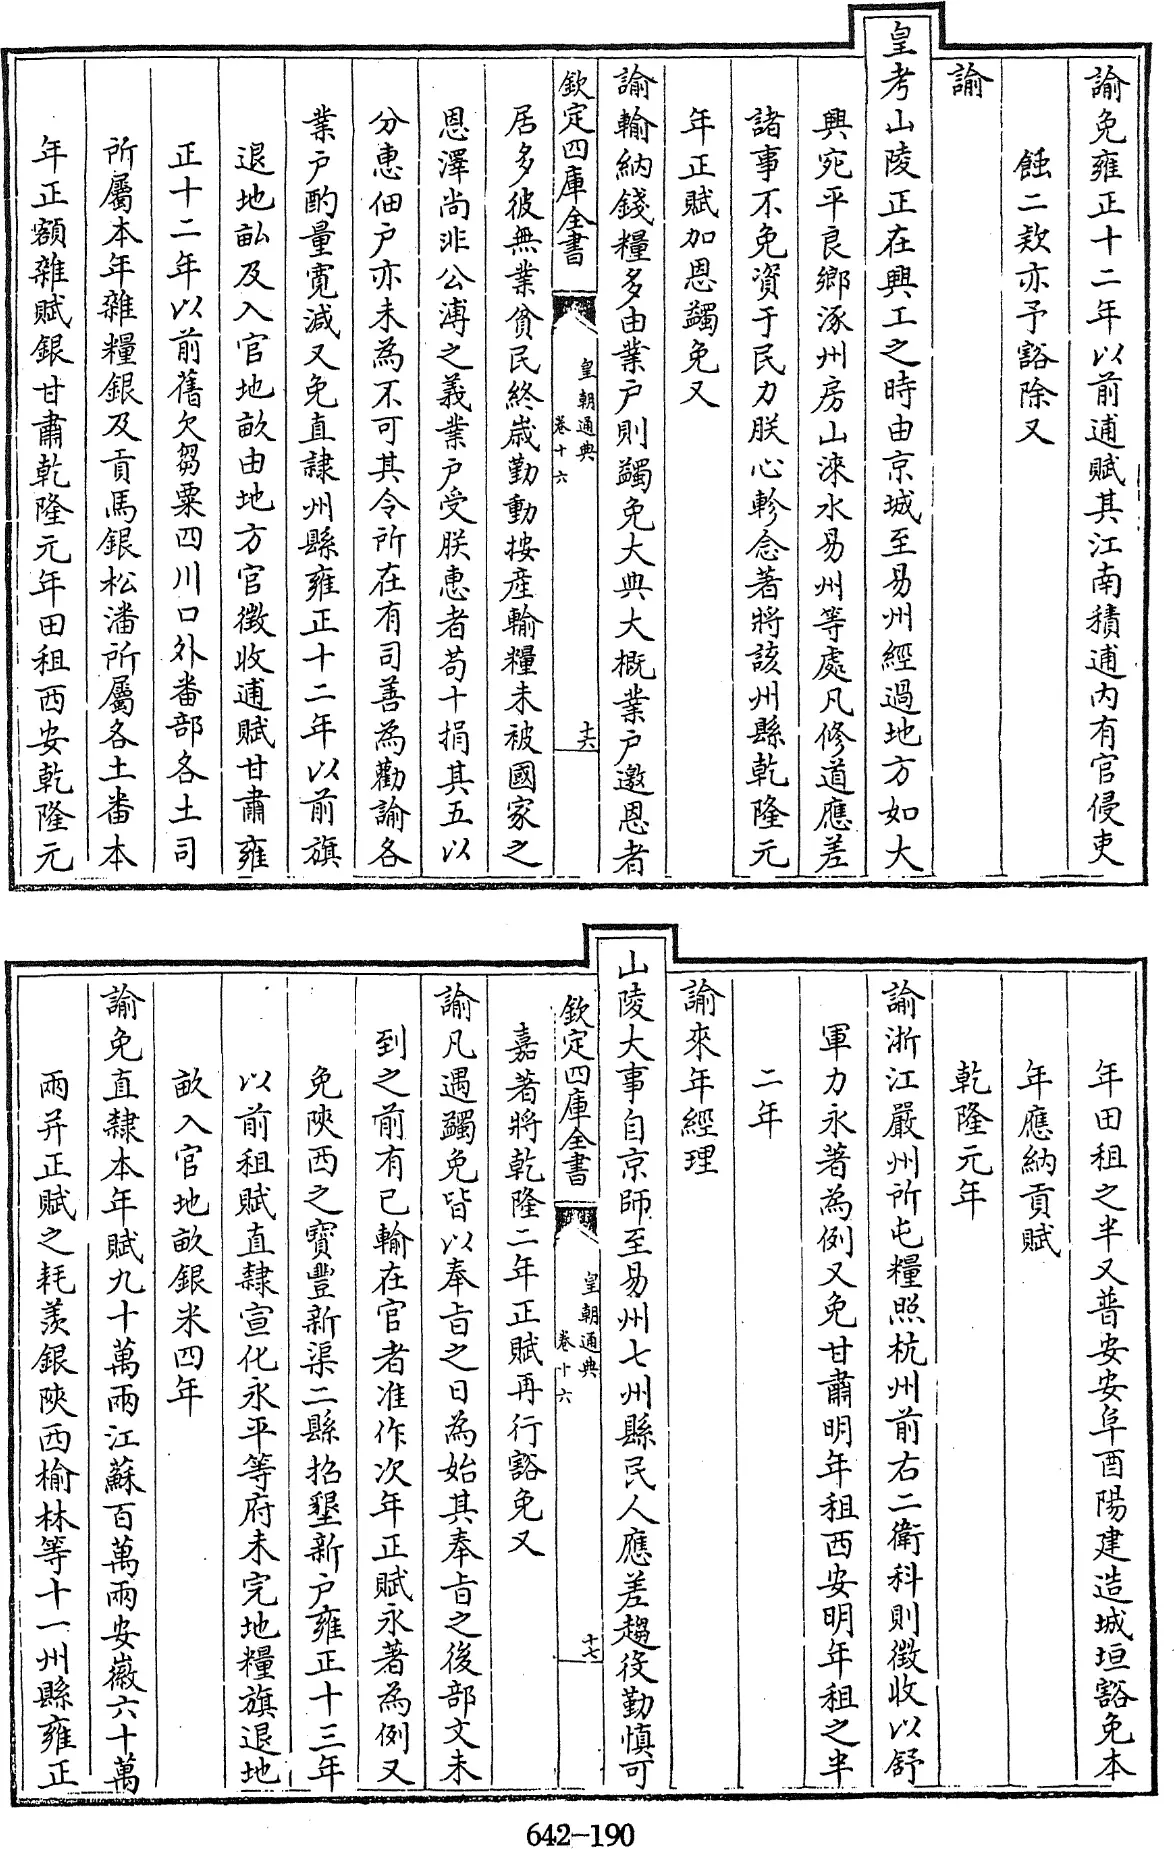 諭免雍正十二年以前逋賦其江南積逋內有官侵吏
蝕二款亦予豁除又
諭
皇考山陵正在興工之時由京城至易州經過地方如大
興宛平良鄉涿州房山淶水易州等處凡修道應差
諸事不免資于民力朕心軫念著將該州縣乾隆元
年正賦加恩蠲免又
諭輸納錢糧多由業户則蠲免大典大概業户邀恩者
欽定四庫全書
皇朝通典
卷十六
十六
居多彼無業貧民終歲勤動按產輸糧未被國家之
恩澤尚非公溥之義業户受朕惠者苟十捐其五以
分惠佃户亦未為不可其令所在有司善為勸諭各
業户酌量寬減又免直隸州縣雍正十二年以前旗
退地畝及入官地畝由地方官徵收逋賦甘肅雍
正十二年以前舊欠芻粟四川口外番部各土司
所屬本年雜糧銀及貢馬銀松潘所屬各土番本
年正額雜賦銀甘肅乾隆元年田租西安乾隆元
年田租之半又普安安阜酉陽建造城垣豁免本
年應納貢賦
乾隆元年
諭浙江嚴州所屯糧照杭州前右二衛科則徵收以舒
軍力永著為例又免甘肅明年租西安明年租之半
二年
諭來年經理
山陵大事自京師至易州七州縣民人應差趨役勤慎可
欽定四庫全書
皇朝通典
卷十六
十七
嘉著將乾隆二年正賦再行豁免又
諭凡遇蠲免皆以奉旨之日為始其奉旨之後部文未
到之前有已輸在官者准作次年正賦永著為例又
免陝西之寶豐新渠二縣招墾新户雍正十三年
以前租賦直隸宣化永平等府未完地糧旗退地
畝入官地畝銀米四年
諭免直隸本年賦九十萬兩江蘇百萬兩安徽六十萬
兩并正賦之耗羨銀陝西榆林等十一州縣雍正
642-190